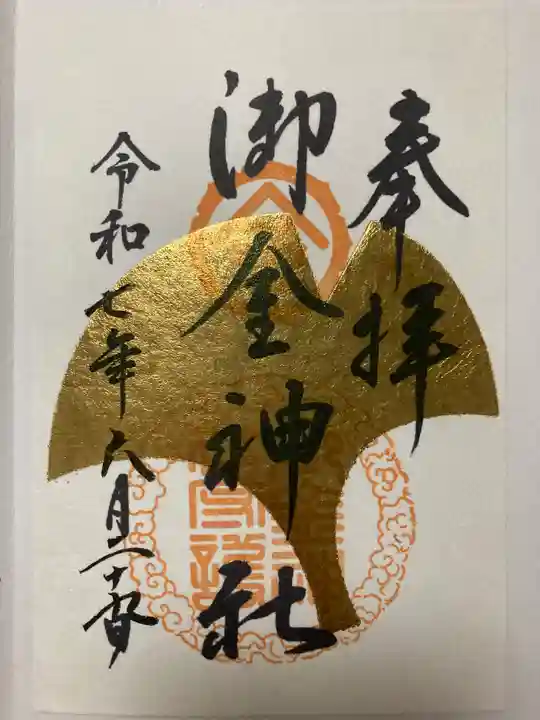 奉拝
御金神社
令和七年六月二十五日